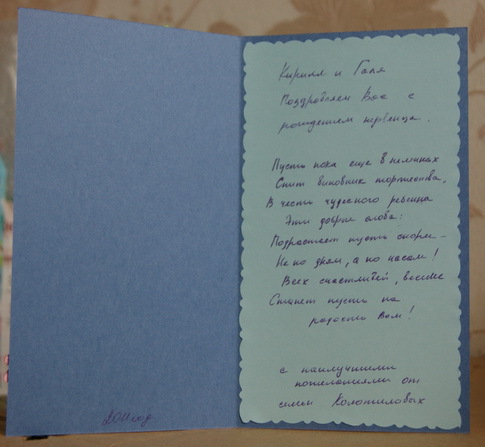 Кирилл и Галя
Поздравляем Вас с
рождением первенца.
Пусть пока еще в пеленках
Спит виновник торжества,
В честь чудесного ребенка
Эти добрые слова:
Подрастает пусть скорей –
Не по дням, а по часам!
Всех счастливей, веселее
Станет пусть на
радость Вам!
с наилучшими
пожеланиями от
семьи
2011 год